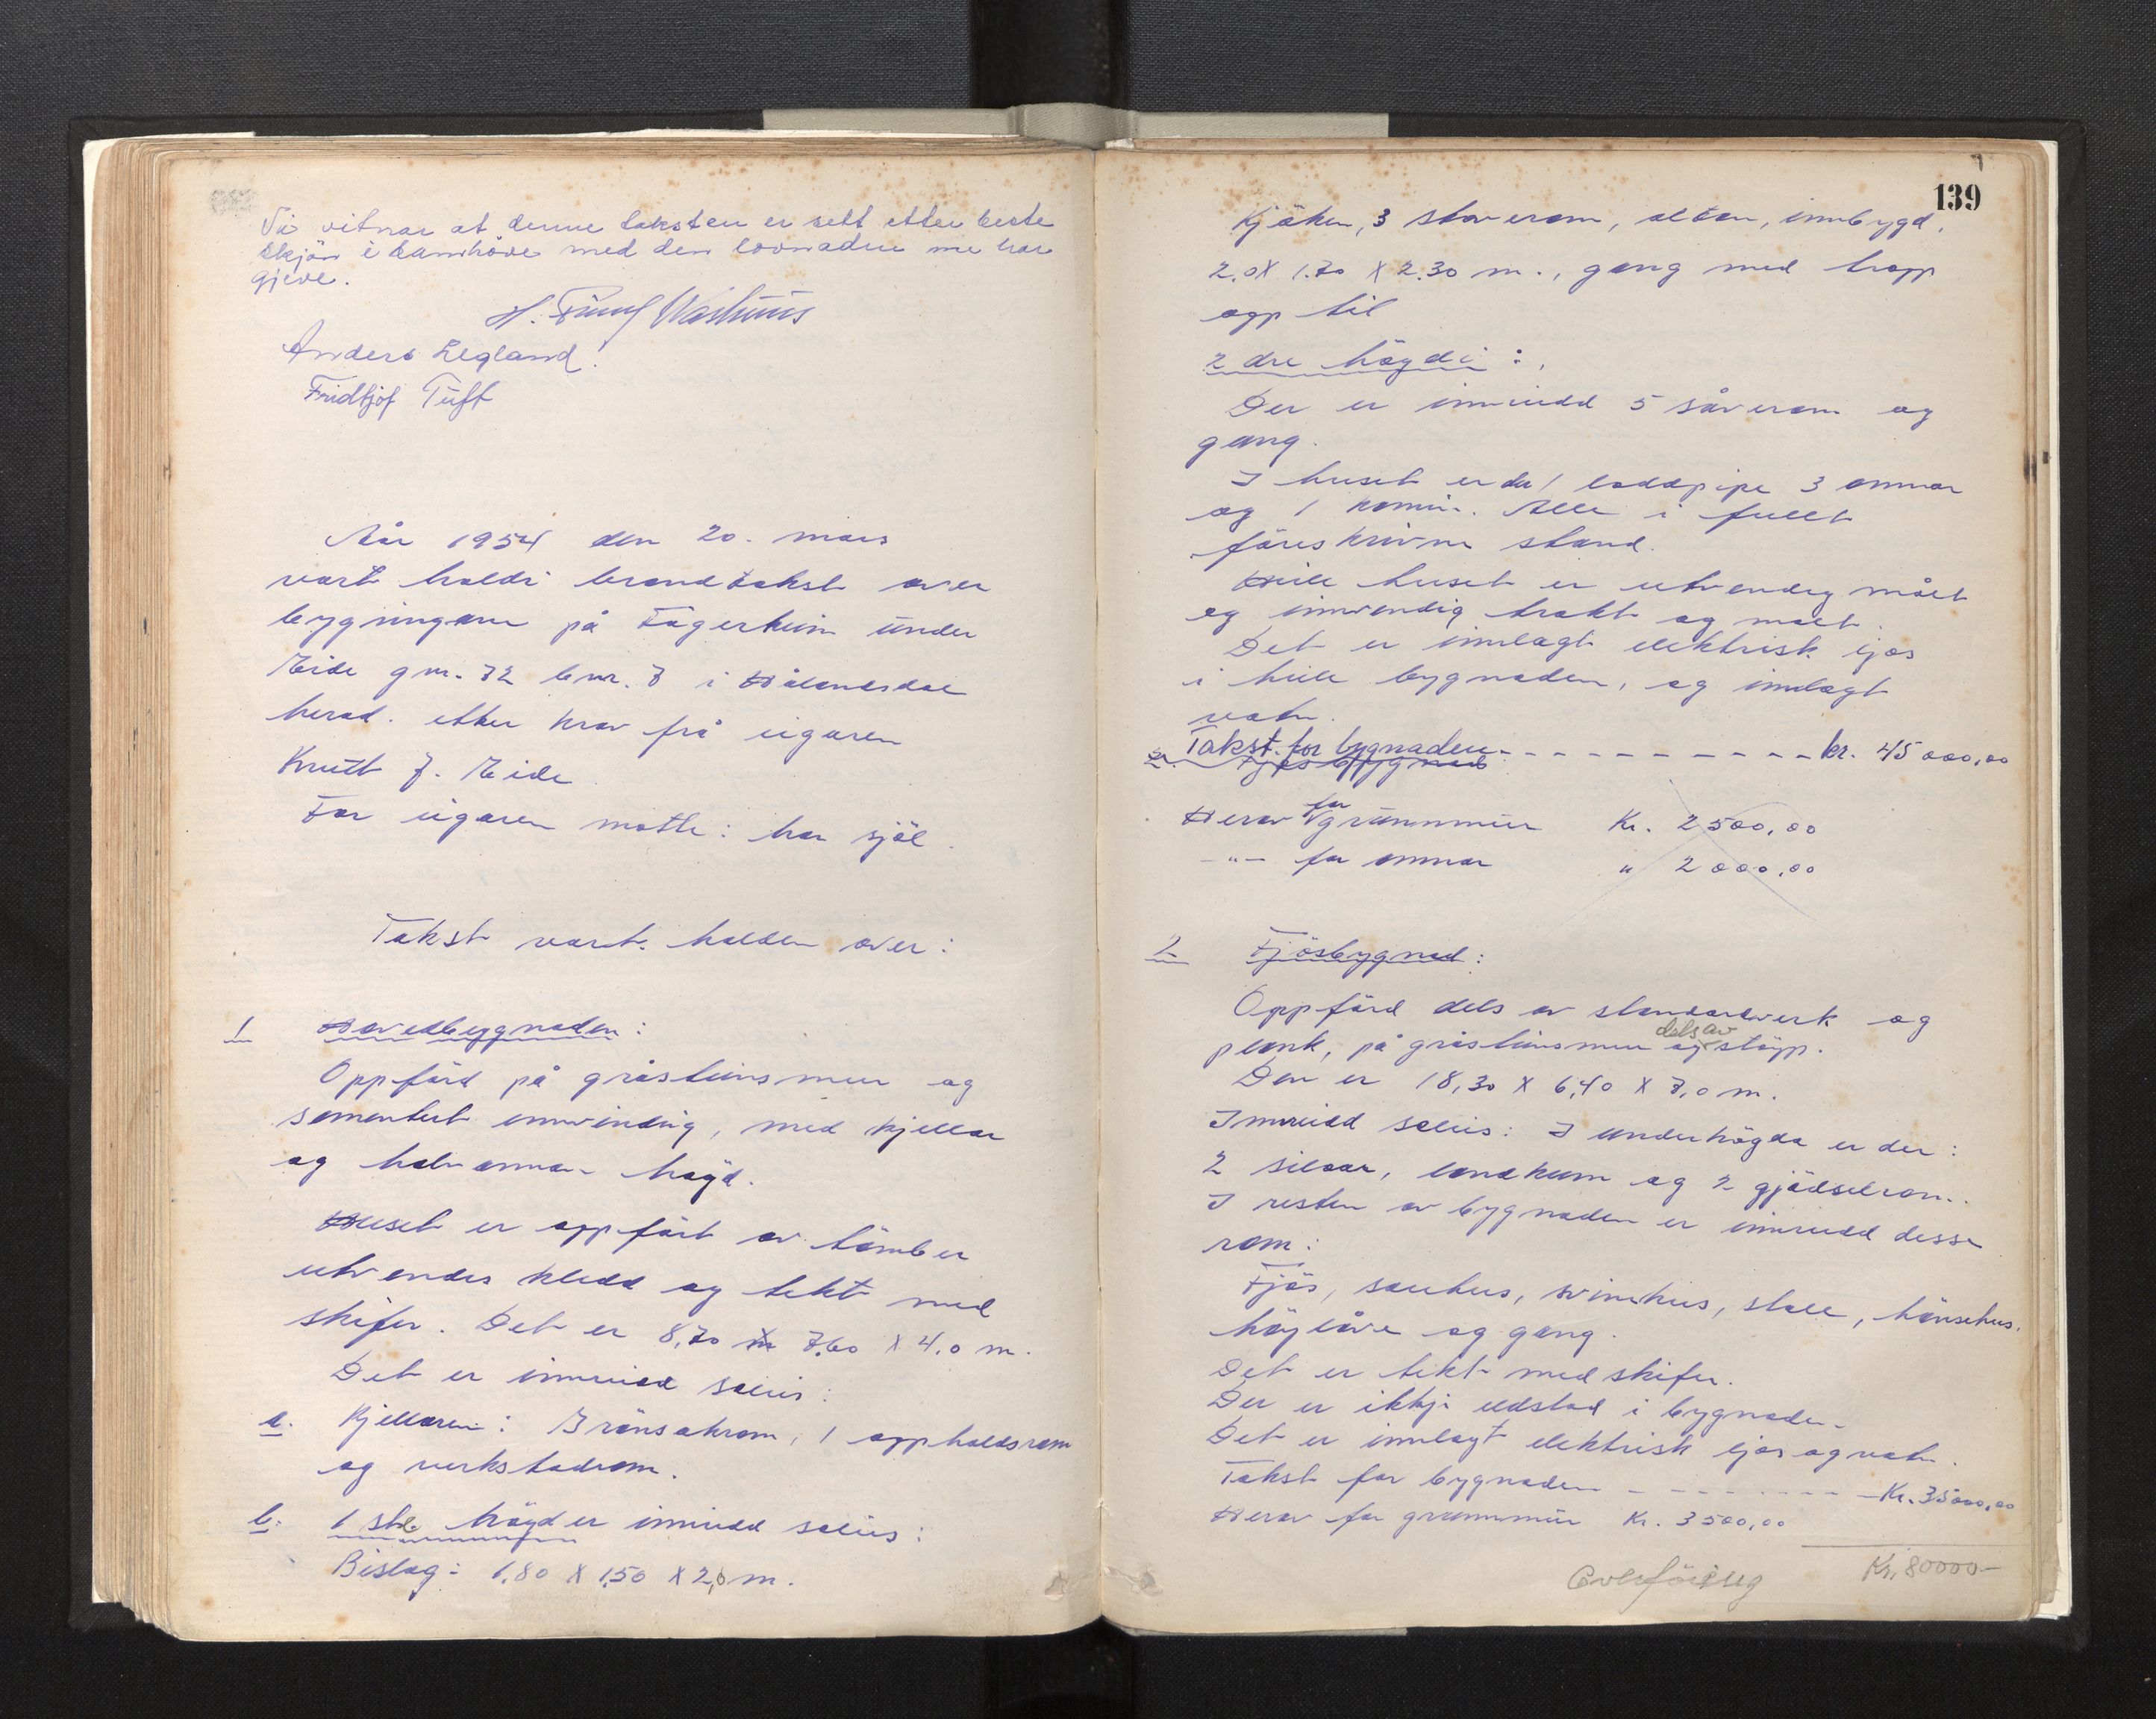 Vi vitnar at denne taksten er sett etter beste
skjön i samhöve med den lovnaden me har
gjeve.
Anders Legland.
Fridtjof Tuft
År 1954 den 20. mars
vart haldi brandtakst over
bygningane på Fagerheim under
Eide gnr. 72 bnr. 7 i Hålandsdal
herad. etter krav frå eigaren
Knutt J. Eide
For eigaren møtte: han sjöl.
Takst vart halden over:
1 Hovedbygnaden:
Oppförd på gråsteinsmur og
sementert innvendig, med kjellar
og halvannan høgd.
Huset er oppfört av tömber
utvendes kledd og tekt med
skifer. Det er 8,70 x 7,60 x 4,0 m.
Det er innreied soleis:
a. Kjellaren: 3 rånsakrom, 1 oppholdsrom
og verkstadrom.
b. 1 ste högd er innredd soleis:
Bislag: 1,80 x 1,50 x 2,0 m.
139
Kjöken, 3 stoverom, altan, innbygd,
2,0 X 1.70 X 2.30 m., gang med trapp
opp til
2 dre högdi:
Der er innreidd 5 såverom og
gang.
I huset er da 1 loddpipe 3 omnar
og 1 komin. Alle i fullt
föreskrivne stand.
Heile huset er utvendig målt
og innvendig trekt og malt.
Det er innlagt elektrisk ljos
i heile bygnaden, og innlagt
vatn.
Takst for bygnaden - - - - - - - - - - kr. 45 000,00
2. Fjösbygnad
Herav for grunnmur Kr. 2500,00
-"- for omnar " 2000,00
2 Fjösbygnad:
Oppförd dels av standarverk og
plank, på gråsteinsmur og dels av stöyp.
Den er 18,30 X 6,40 X 7,0 m.
Innreidd soleis: I underhögda er der:
2 siloar, landkum og 2 gjödselrom.
I resten av bygnaden er innreidd desse
rom:
Fjös, sauehus, svinehus, stall, hönsehus.
höylåve og gang.
Det er tekt med skifer.
Der er ikkje eldstad i bygnaden
Det er innlagt elektrisk ljos og vatn.
Takst for bygnaden - - - - - - - - Kr. 35000,00
Herav for grunnmur Kr. 3500,00
Kr. 80000-